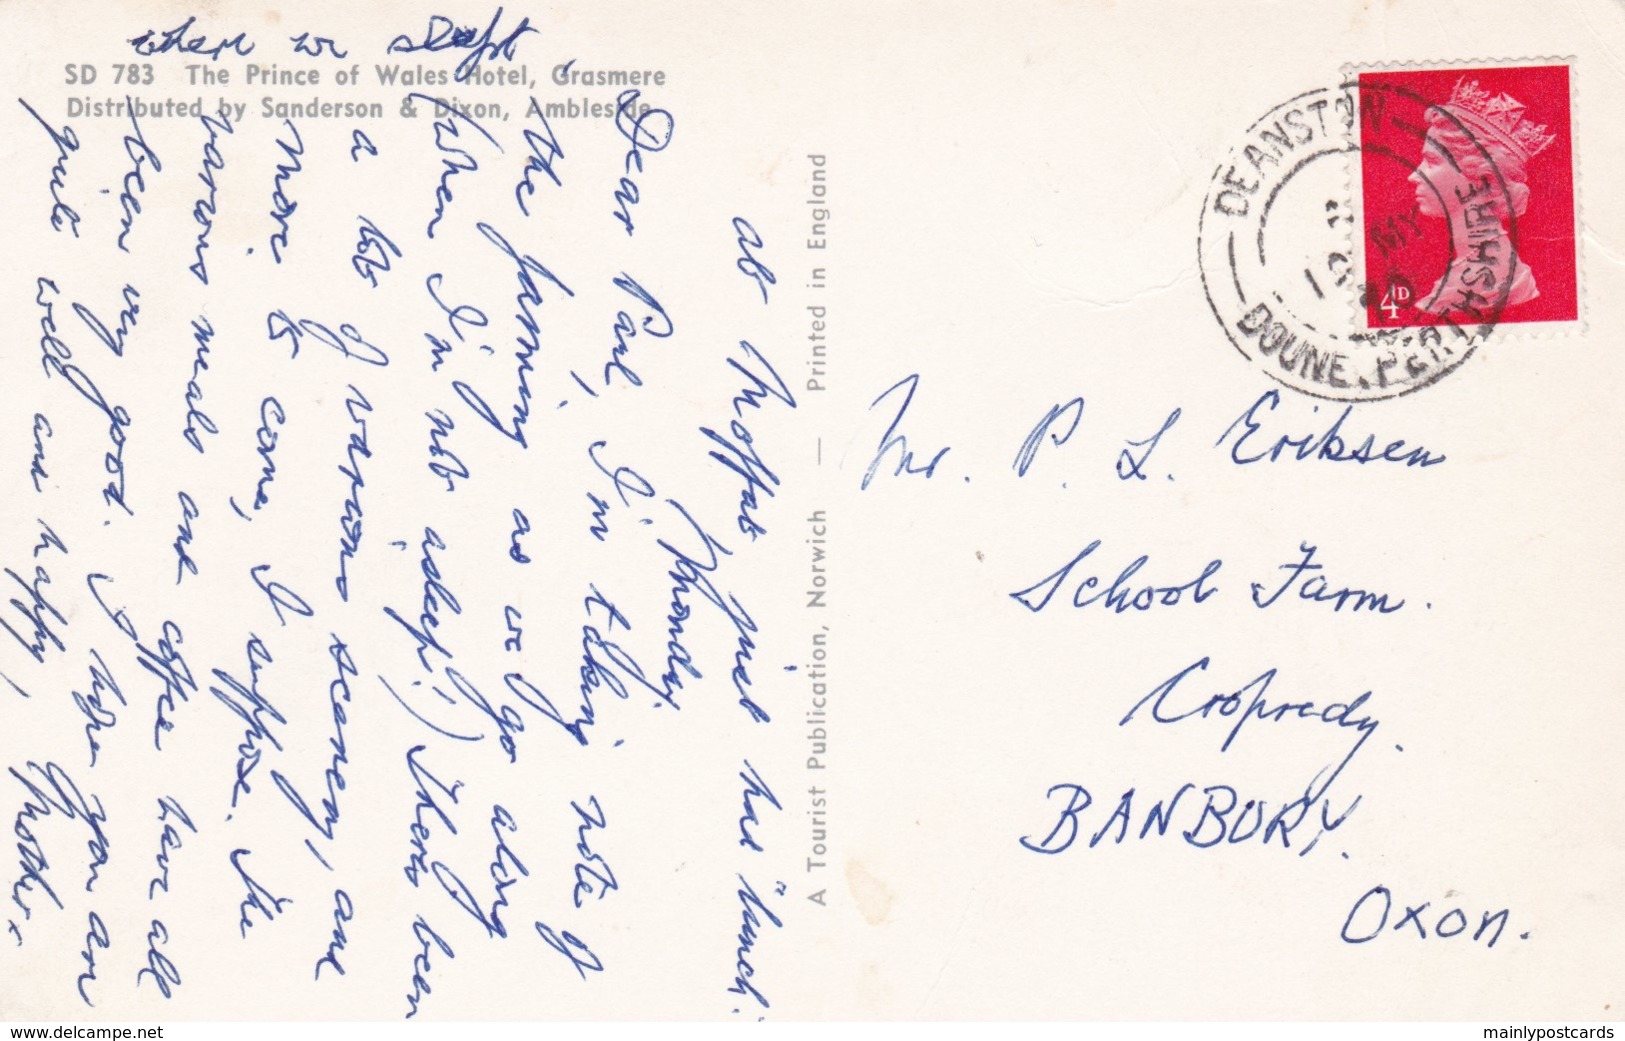 where we slept.
SD 783 The Prince of Wales Hotel, Grasmere
Distributed by Sanderson & Dixon, Ambleside
at Moffat just had lunch.
Monday.
Dear Paul, I'm taking note of
the farming as we go along
(when I'm not asleep!) There been
a lot of various scenery, and
more to come, I suppose. The
various meals and coffee have all
been very good. I hope you are
quite well and happy,
Mother x
A Tourist Publication, Norwich — Printed in England
DEANSTON
12 MY
DOUNE. PERTHSHIRE
4D
Mr. P. L. Eriksen
School Farm.
Cropredy.
BANBURY.
OXON.
www.delcampe.net
mainlypostcards